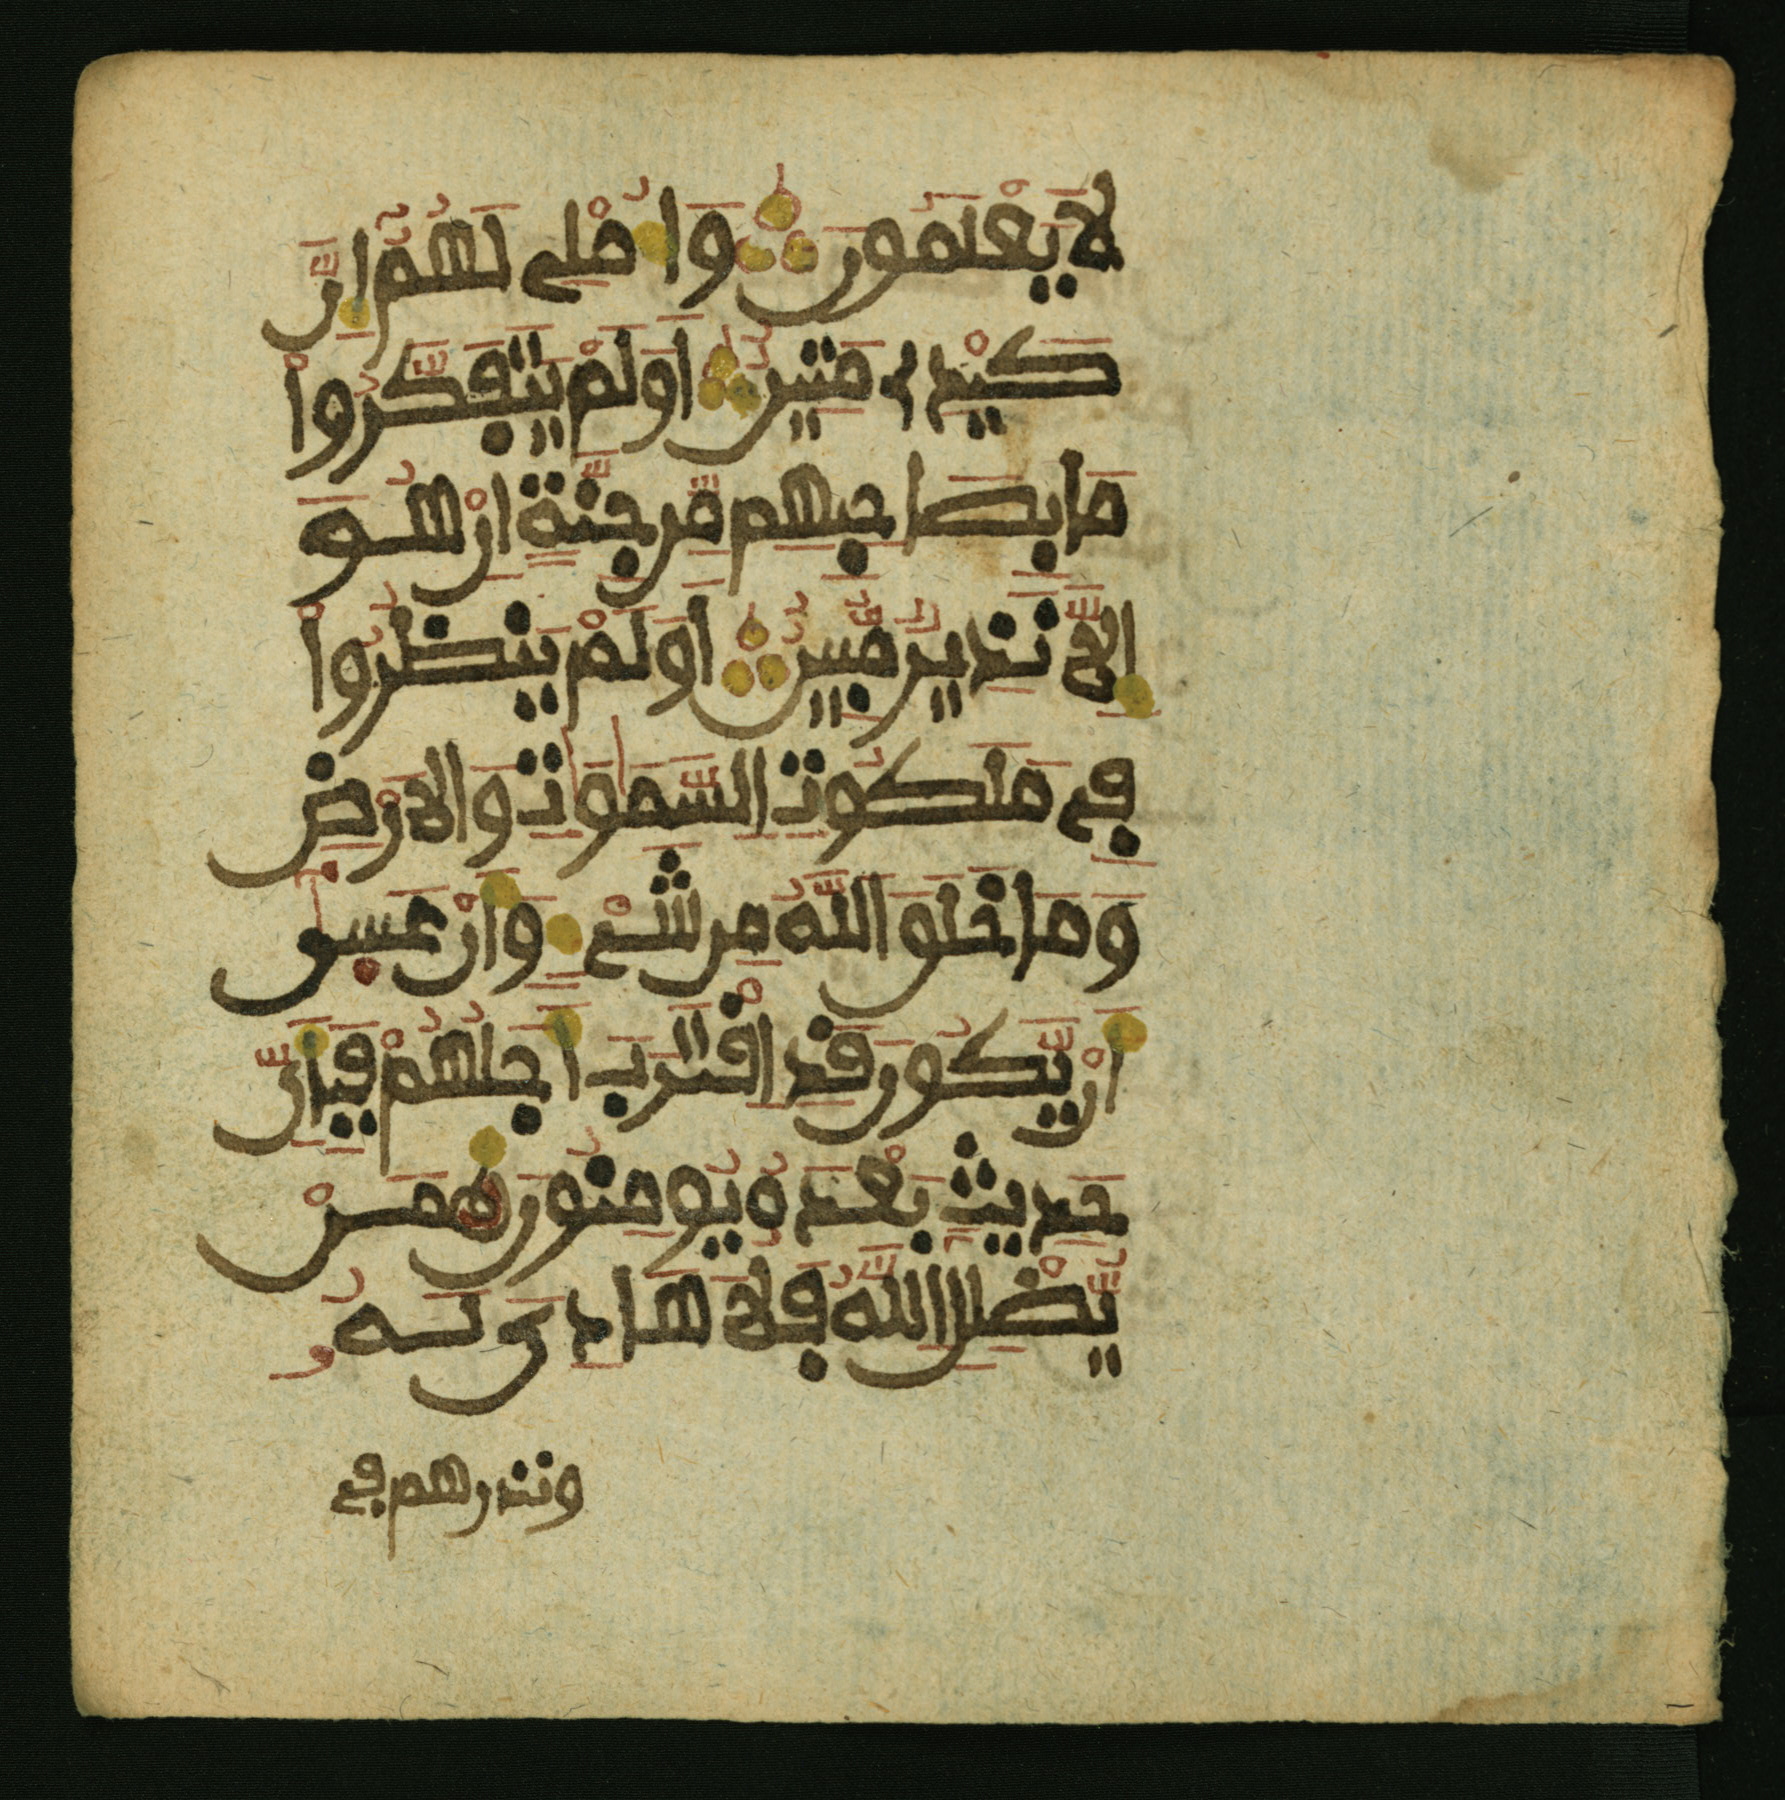 لَا يَعْلَمُونَ وَأُمْلِے لَهُمُۥٓ إِنَّ
كَيْدِے مَتِينٌ أَوَلَمْ يَتَفَكَّرُواْ
مَا بِصَاحِبِهِم مِّن جِنَّةٍ اِنْ هُوَ
إِلَّا نَذِيرٌ مُّبِينٌ أَوَلَمْ يَنظُرُواْ
فِے مَلَكُوتِ السَّمَٰوَٰتِ وَالَارْضِ
وَمَا خَلَقَ اللَّهُ مِن شَےْءٍ وَأَنْ عَسۭىٰٓ
أَنْ يَّكُونَ قَدِ اِقْتَرَبَ أَجَلُهُمْ فَبِأَيِّ
حَدِيثٍ بَعْدَهُۥ يُومِنُونَ مَنْ
يُّضْلِلِ اللَّهُ فَلَا هَادِيَ لَهُۥ
ونذرهم فے